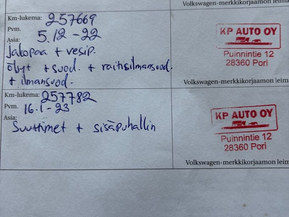 Volkswagen-merkkorjaamon leima
Km-lukema: 257669
Pvm. 5.12-22
Asia:
Jakopää + vesip.
Öljyt + suod. + raitisilmansuod.
+ ilmansuod.
KP AUTO OY
Puinnintie 12
28360 Pori
Volkswagen-merkkikorjaamon leim
Km-lukema: 257782
Pvm. 16.1-23
Asia:
Suuttimet + sisäpuhallin
KP AUTO OY
Puinnintie 12
28360 Pori
Volkswagen-merkkikorjaamon leim